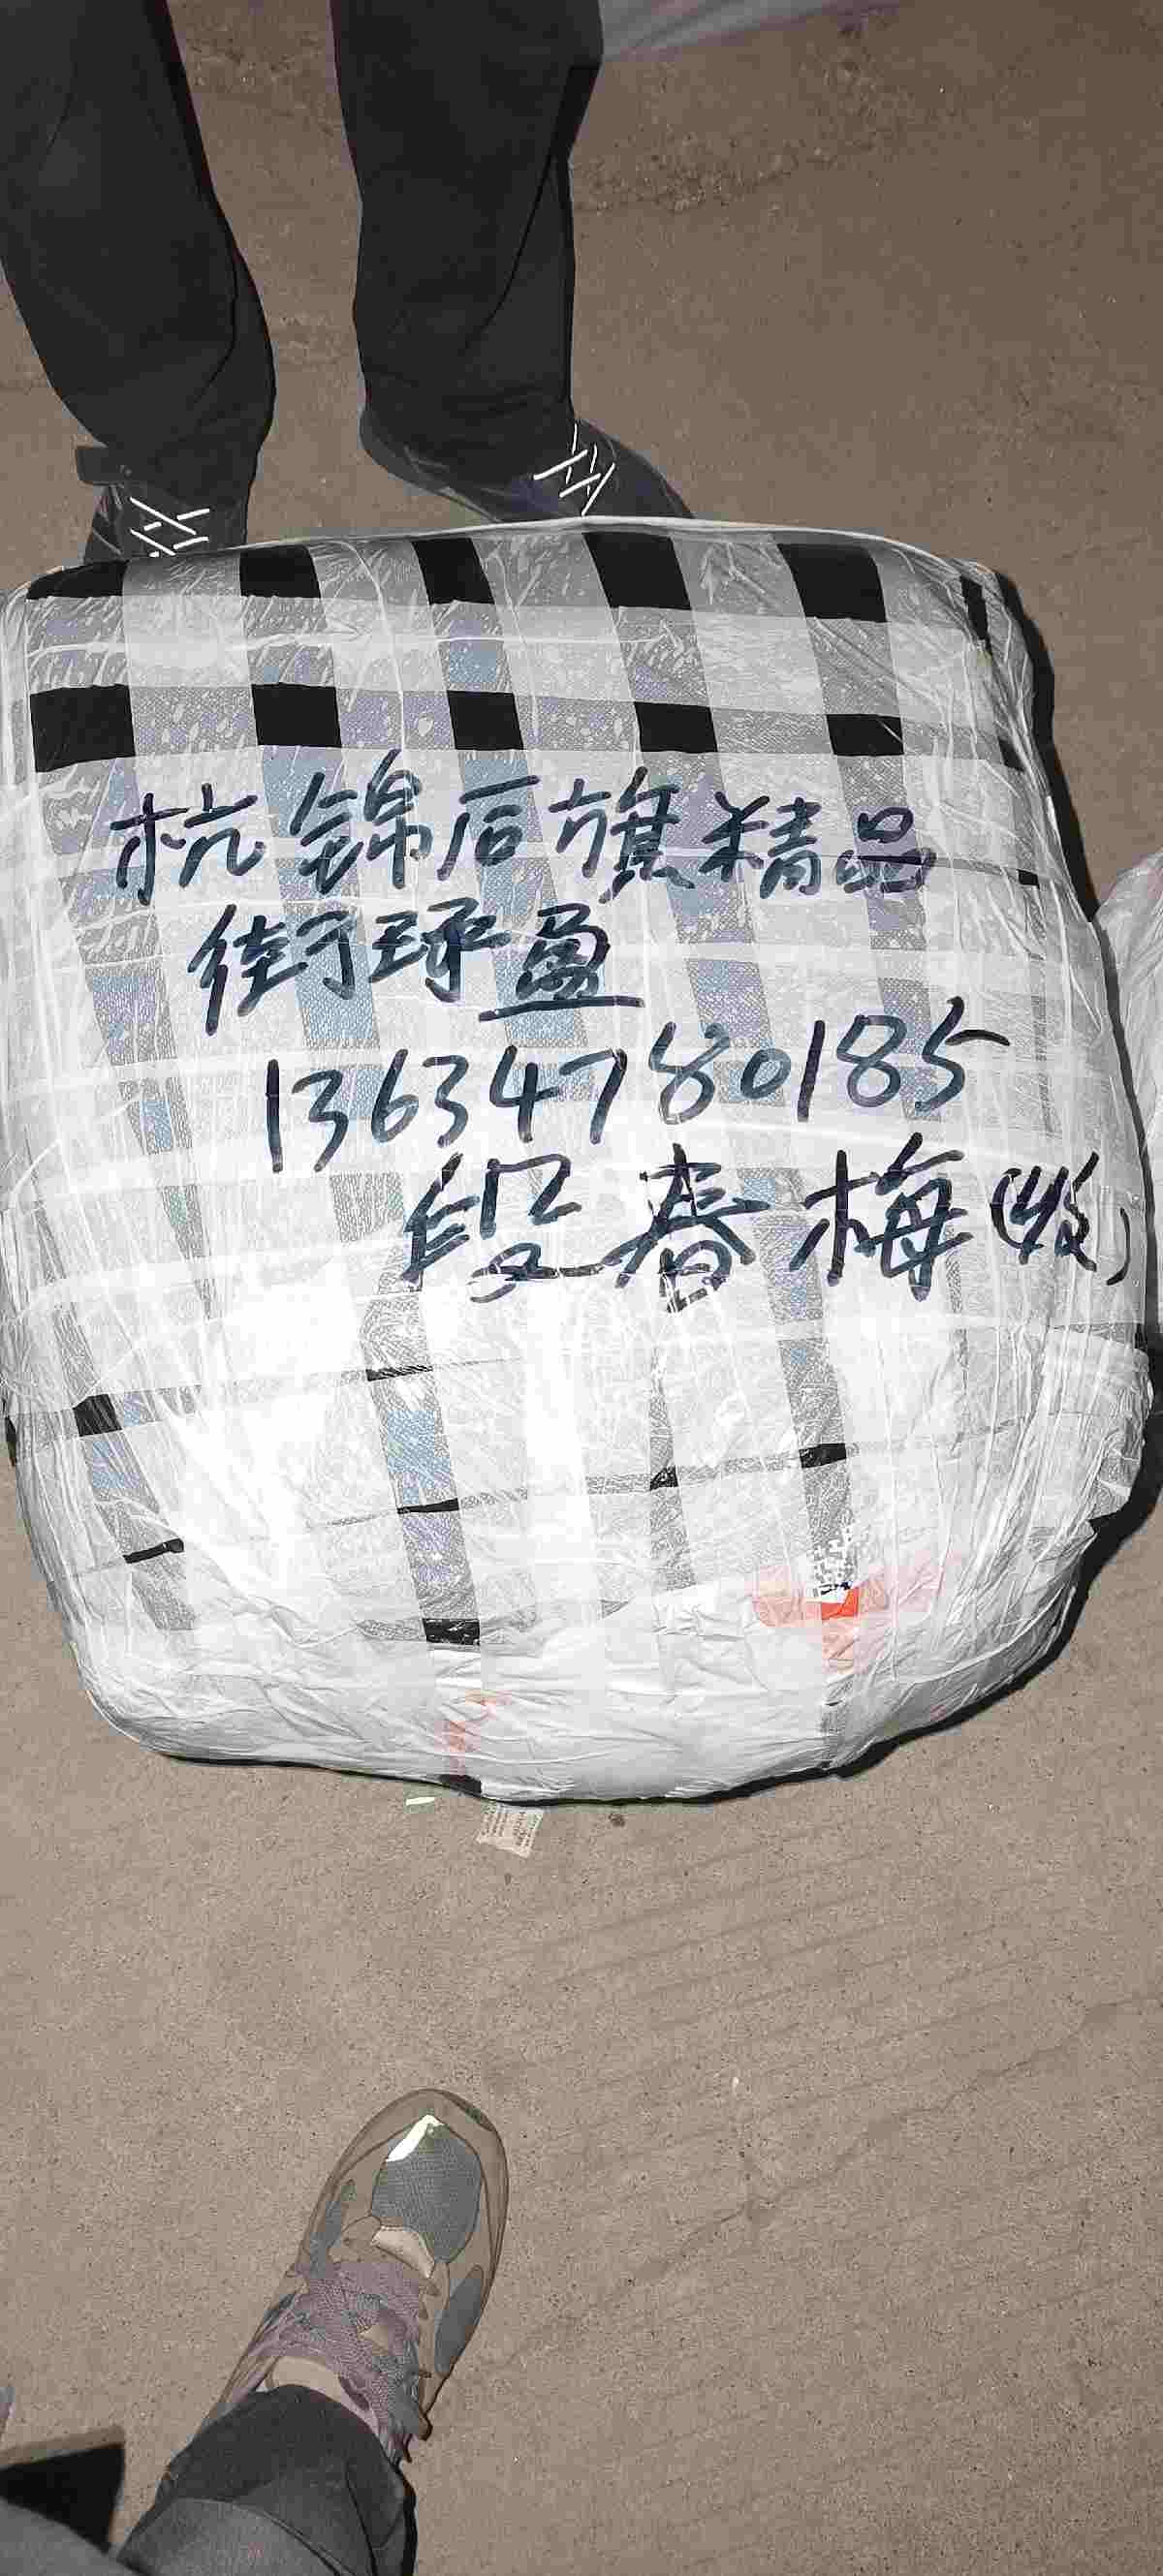 杭锦后旗精品
街环盈
13634780185
段春梅(收)